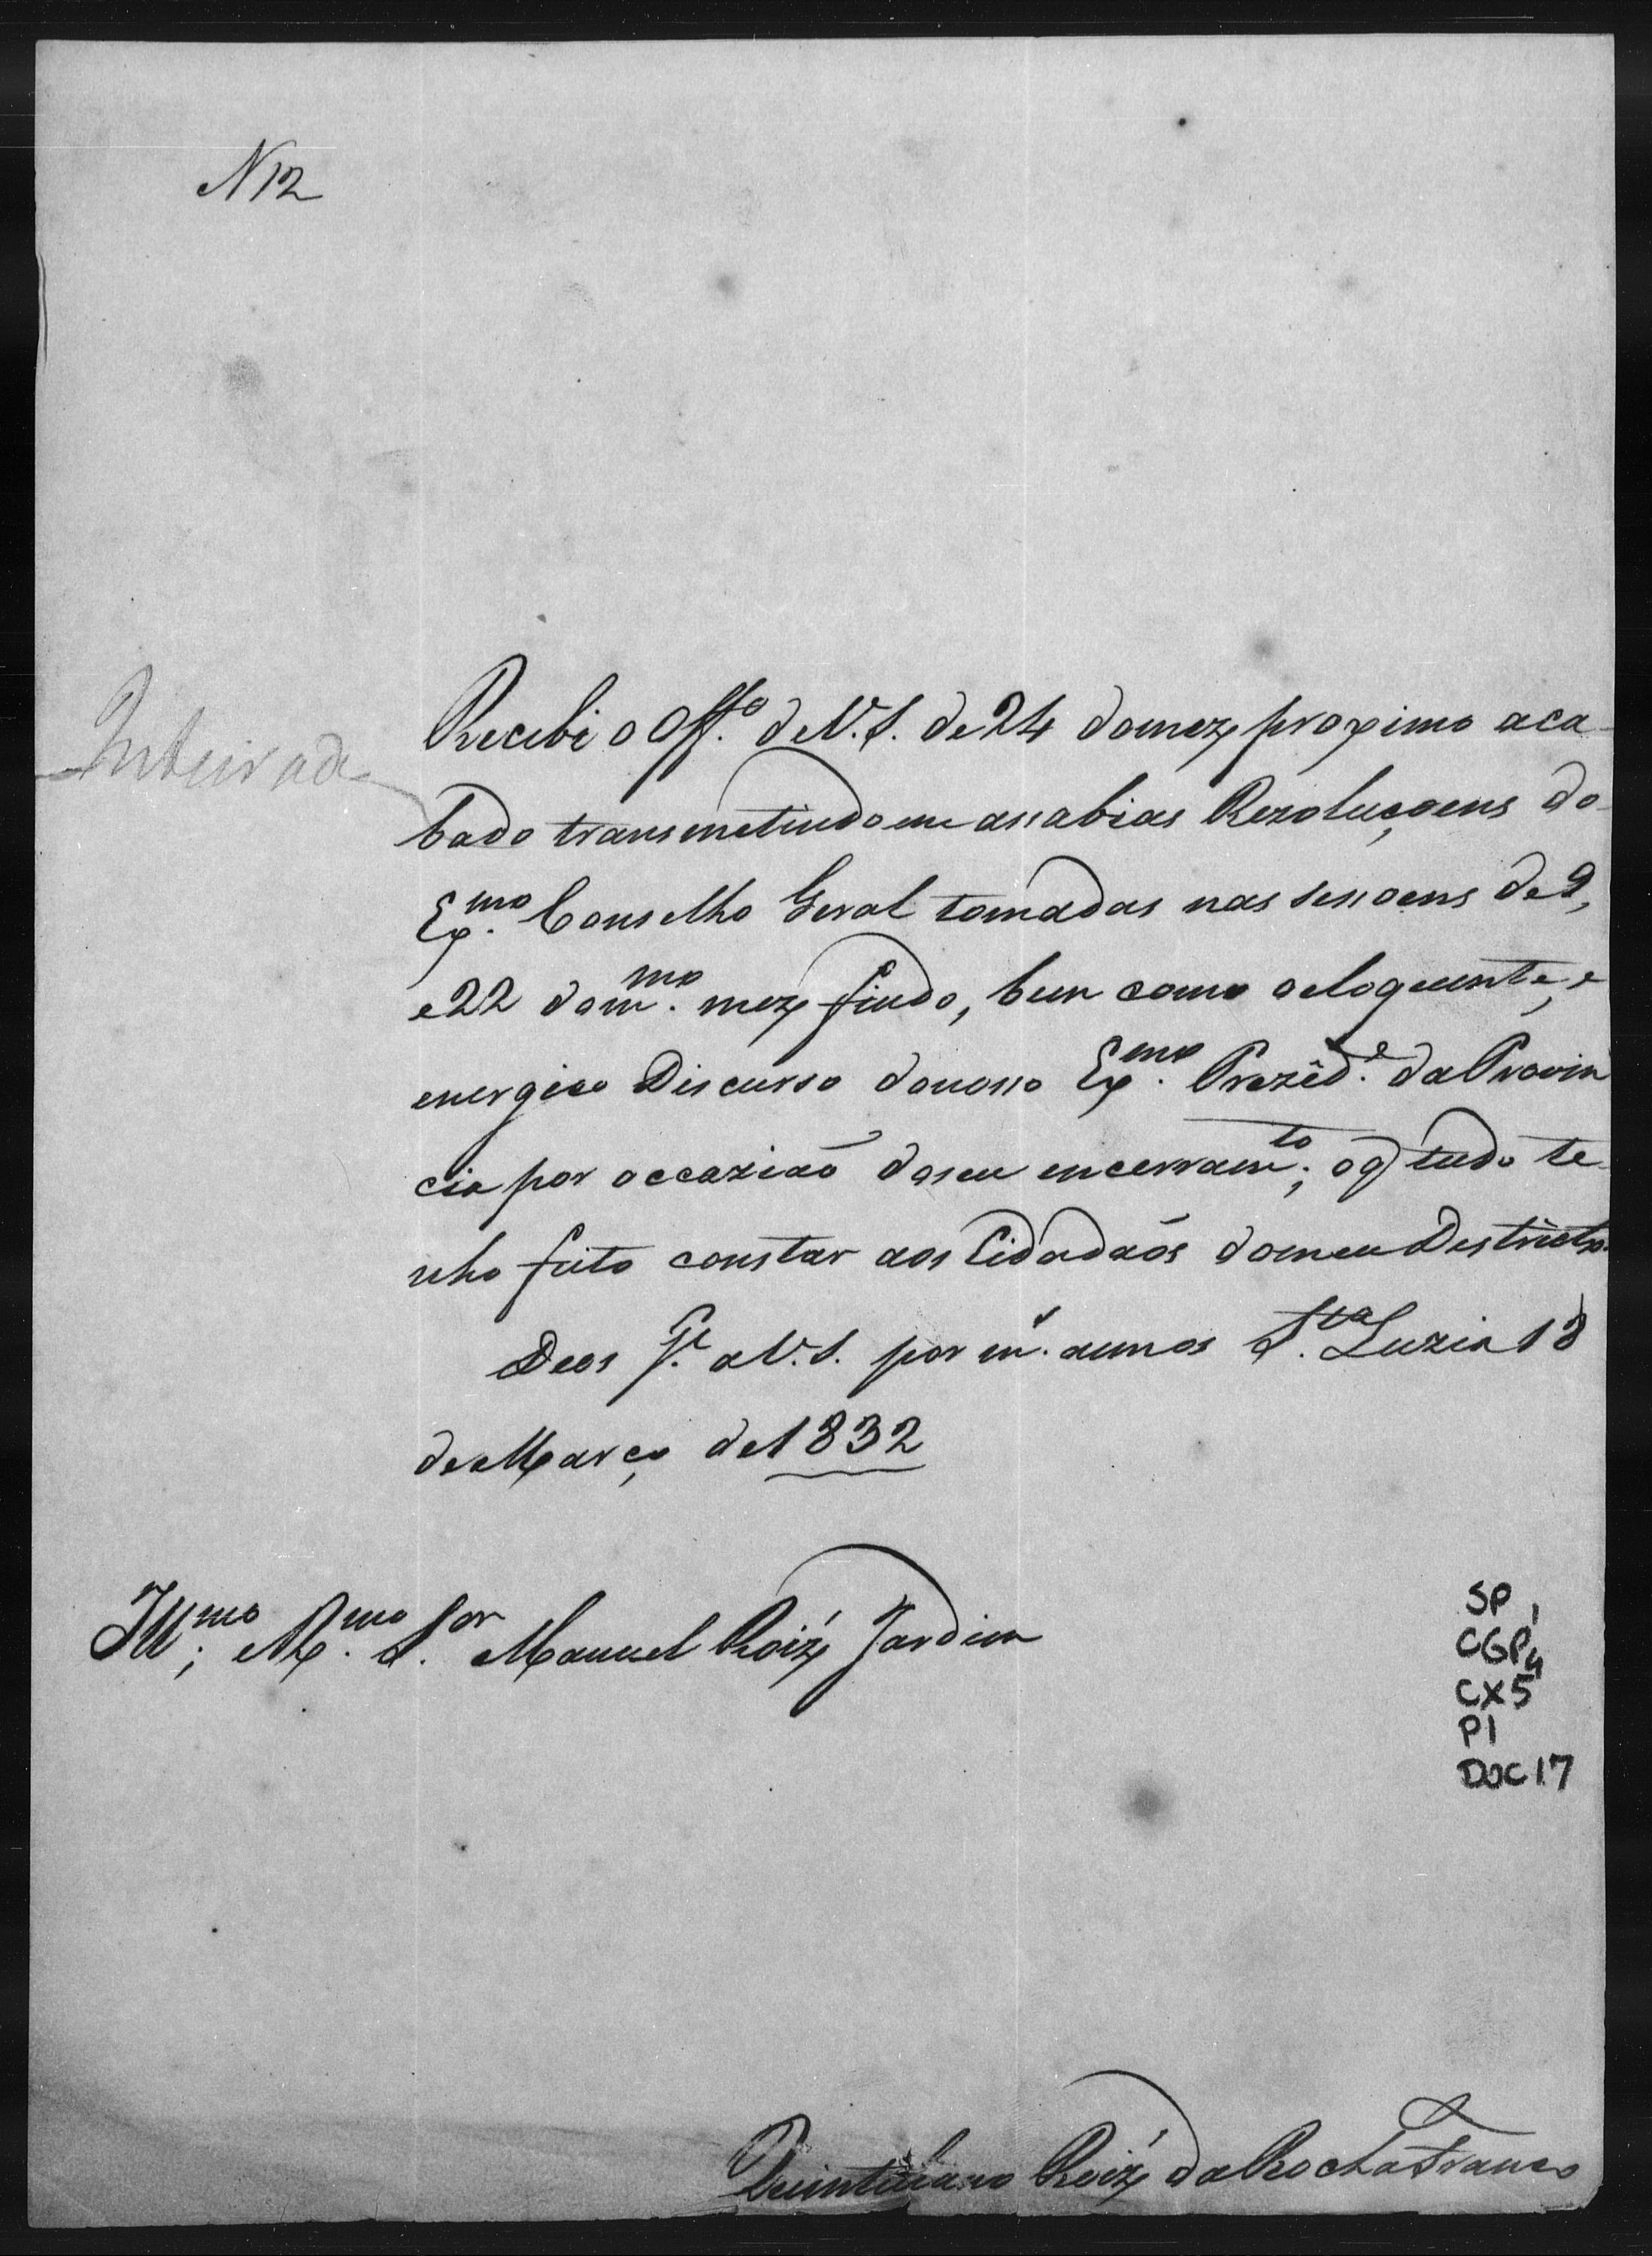 N12
Inteirado
Recebi o Off.º de V.S. de 24 do mez proximo aca
bado transmetindome as sabias Rezoluçoens do
Ex.mo Conselho Geral tomadas nas sessoens de 9,
e 22 do m.mo mez findo, bem como o eloquente, e
energico Discurso do nosso Ex.mo Prezid.e da Provin
cia por occazião do seu encerram.to; o q tudo te
nho feito constar aos Cidadãos do meu Destricto
Deos g.e a V.S. por m.s annos S.ta Luzia 18
de Março de 1832
Ill.mo; e R.mo S.or Manuel Roiz Jardim
Quintiliano Roiz da Rocha Franco
SP 1
CGP4
CX5
P1
DOC 17